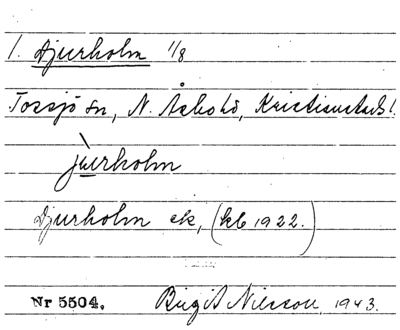 1. Djurholm 1/8
Tossjö sn, N. Åsbo hd, Kristianstads l.
jùrholm
Djurholm ek, (kb 1922.)
Nr 5504. Birgit Nilsson, 1943.